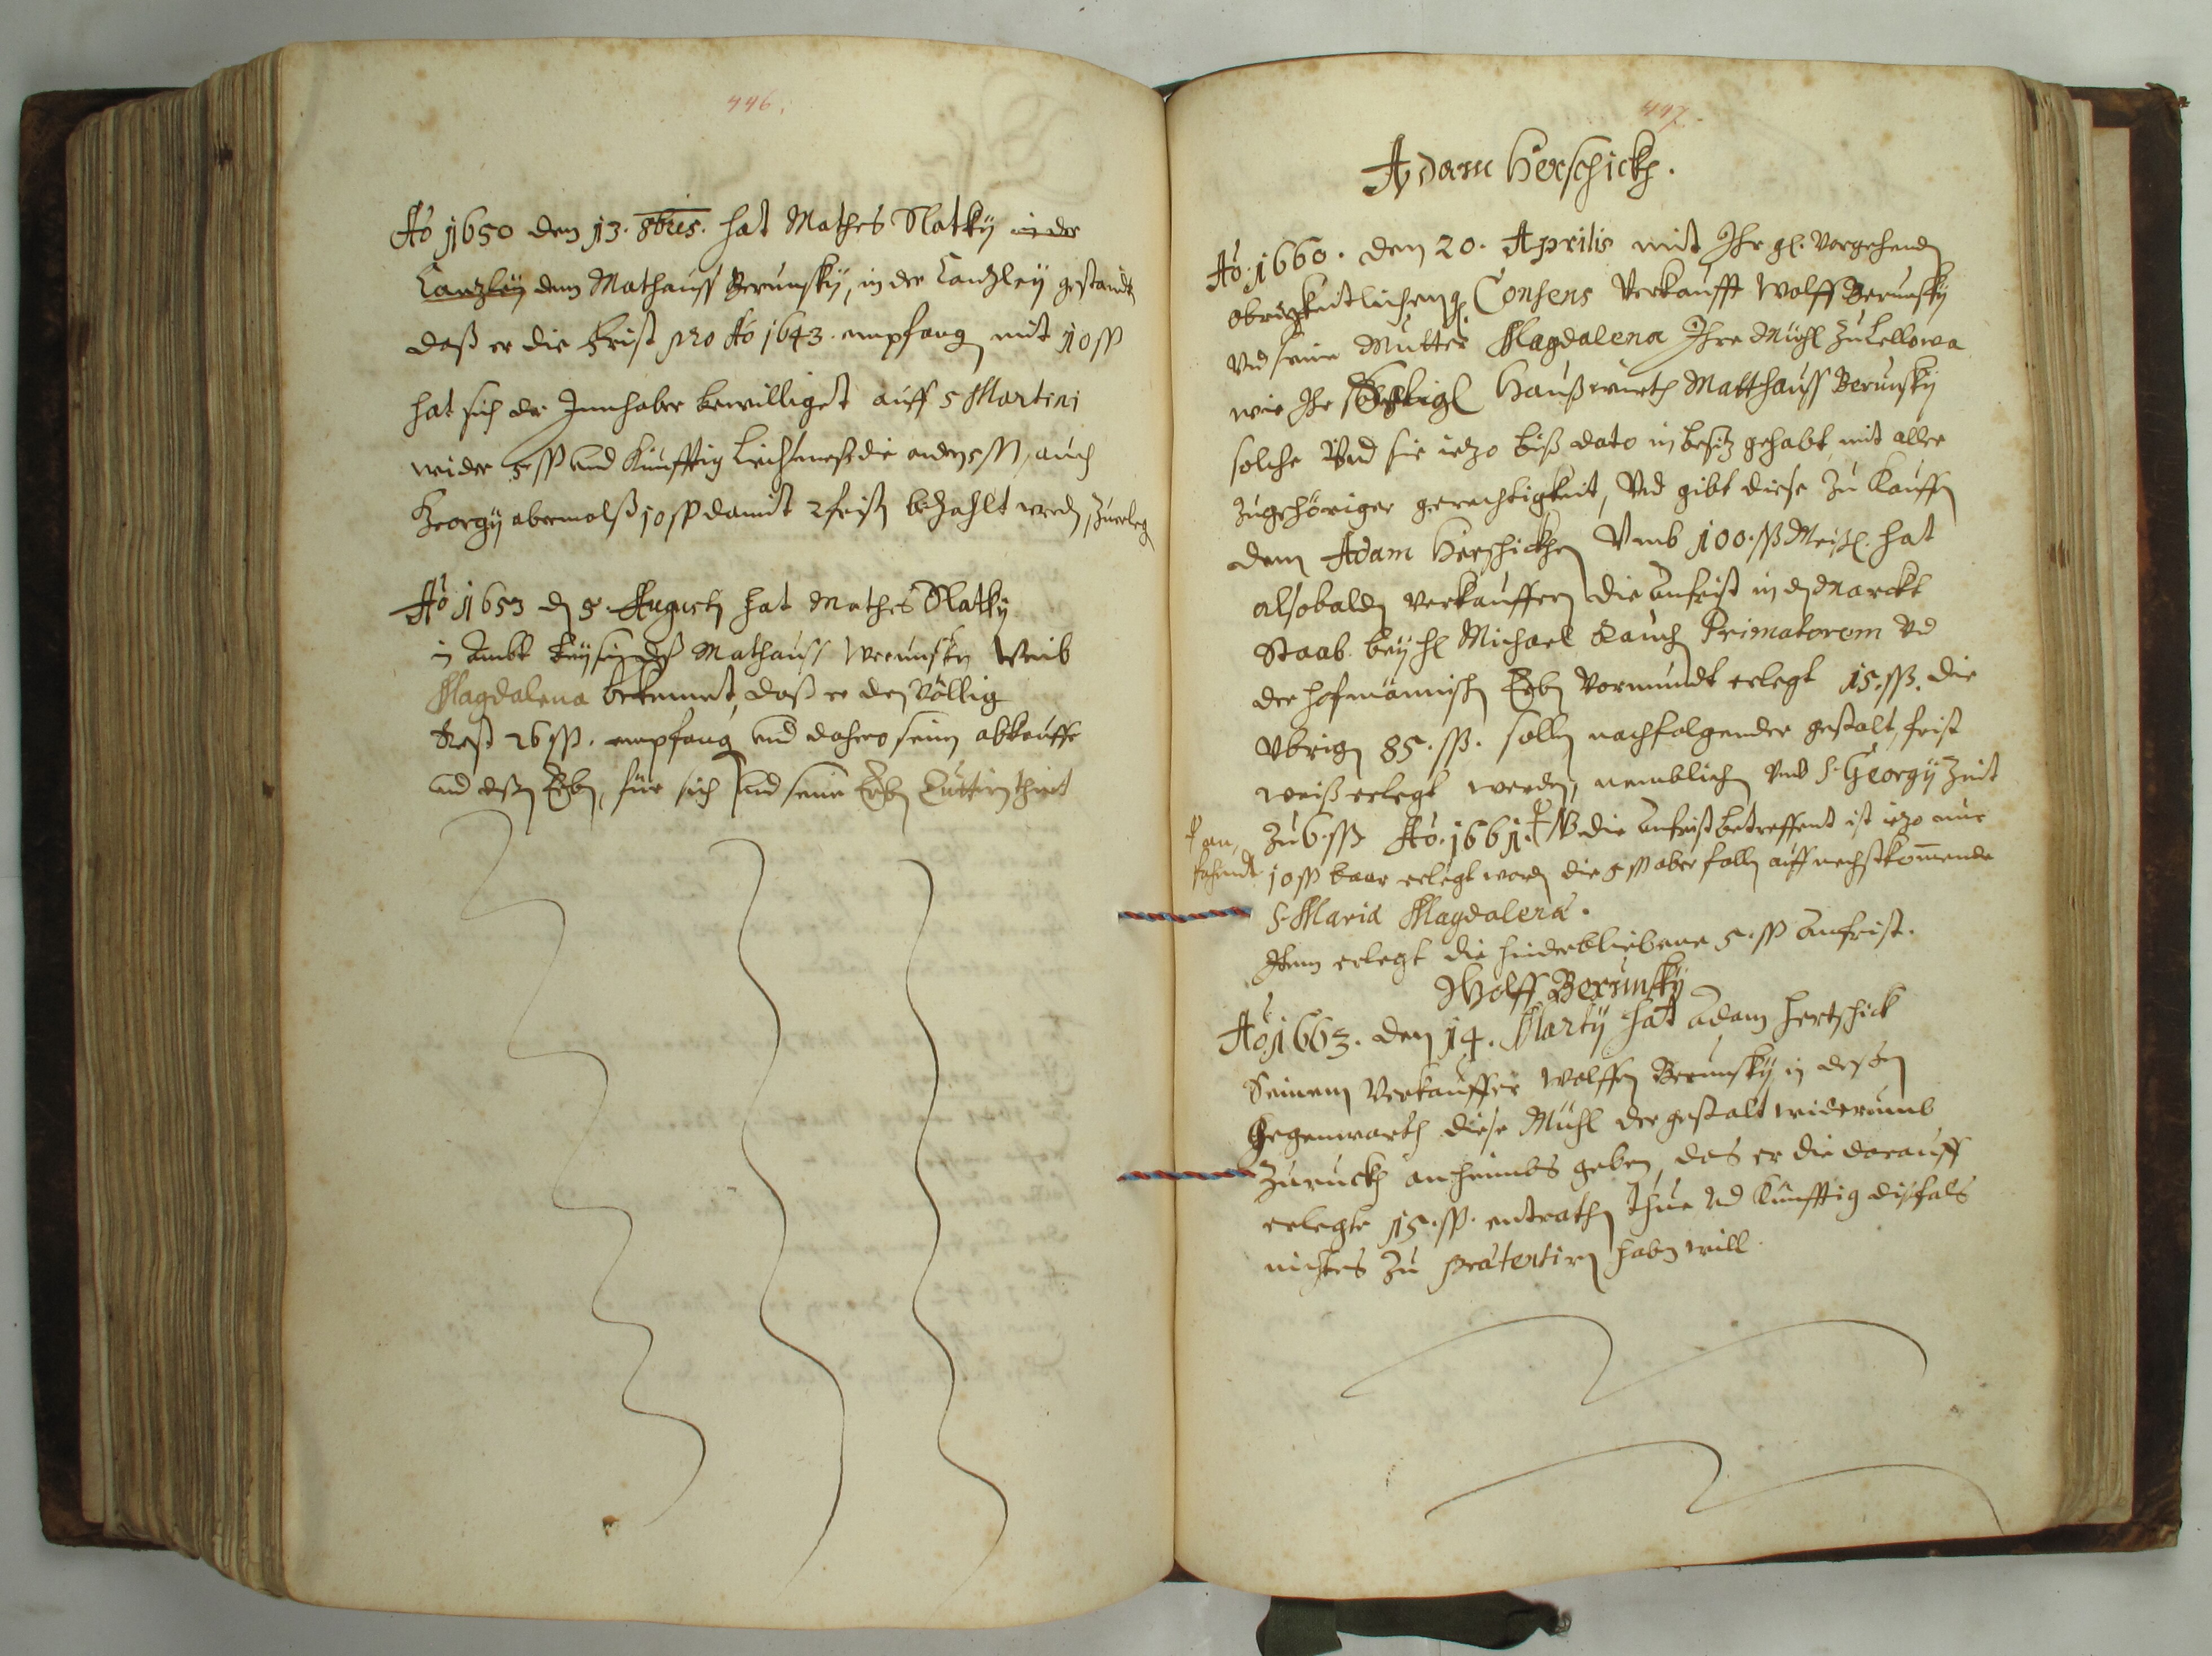 446.
Aō 1650 den 13. 8bris. hat Mathes Slatky in der
Canzley dem Mathauss Berunsky, in der Canzley gestandt
daß er die Frist pro Aō 1643. empfang mit 10 ss
hat sich der Innhaber bewilliget auff S Martini
wider 5 ss und Künfftig Liechtmeß die andern 5 ss, auch
Georgy abermalß 10 ss damit 2 frist bezahlt werdn, zuerlegn
Aō 1653 dn 5. Augusti hat Mathes Slatky
in Ambt deß Mathauss Werunsky Weib
Magdalena bekennet, daß er den Völlig
Rest 26 ss. empfang und dahero seinen abkauffer
und deßen Erbn, für sich und seine Erbn Quittirn thuet
447.
Adam Herschickh.
Aō. 1660. den 20. Aprilis mit Ihr gl. vorgehendn
obrigkeitlichen Consens Verkaufft Wolff Berunsky
Vnd seine Mutter Magdalena Ihre Mühl zu Lellowa
wie Ihr Seelig Haußwürth Matthauss Berunsky
solche Vnd sie iezo biß dato in besiz gehabt, mit aller
zugehöriger gerechtigkeit, Vnd gibt diese zu Kauffn
dem Adam Herschickhen Vmb 100. ss Meißl. hat
alsobalden verkauffern die Anfrist in dn Marckt
Staab. bey hl Michael Rauch Primatorem Vnd
der hofmännischn Erbn Vormundt erlegt 15. ss. die
Vbrign 85. ss. solln nachfolgender gestalt, frist
weiß erlegt werden, nemblichen Vmb S. Georgy Zeit
zu 6. ss Aō. 1661. NB die Anfrist betreffent ist iezo nur
an,
fahendt
10 ss baar erlegt worden die 5 ss aber solln auff nechstkommende
S. Maria Magdalena.
Item erlegt die hinderbliebene 5. ss Anfrist.
Wolff Berunsky
Aō 1663. den 14. Marty hat Adam Hertschick
Seinem Verkauffer Wolffen Berunsky in deßen
Gegenwarth diese Mühl der gestalt widerumb
Zuruckh anheimbs geben, das er die darauff
erlegte 15. ss. entrathen thue Vnd Künfftig disfals
nichtes zu praetentirn habn will.